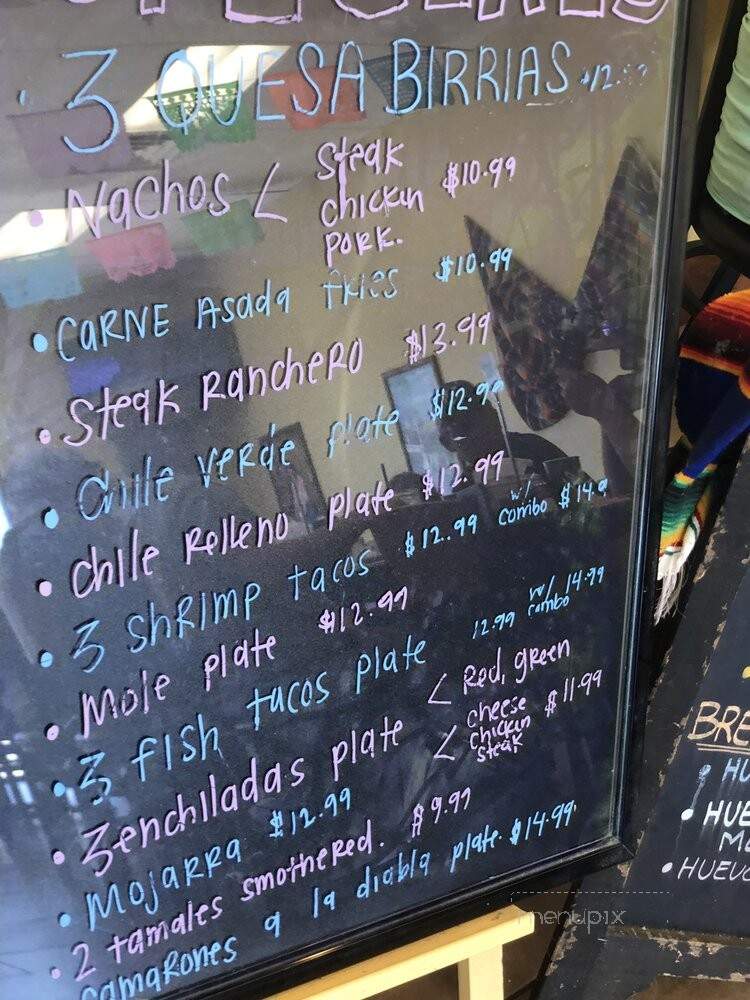 3 QUESA BIRRIAS
• Nachos < Steak $10.99
chickin
Pork.
• CaRNE Asada fries $10.99
• Steak Ranchero $13.99
• Chile Verde plate $12.99
• Chile Relleno plate $12.99
• 3 shrimp tacos $12.99 w/ combo $14.9
• Mole plate $12.99
• 3 fish tacos plate 12.99 w/ combo 14.99
• 3 enchiladas plate < Red, green
< cheese chickin steak $11.99
• Mojarra $12.99
• 2 tamales smothered. $9.99
camarones a la diabla plate. $14.99
BRE
HU
• HUE
• HUEVO
menupix